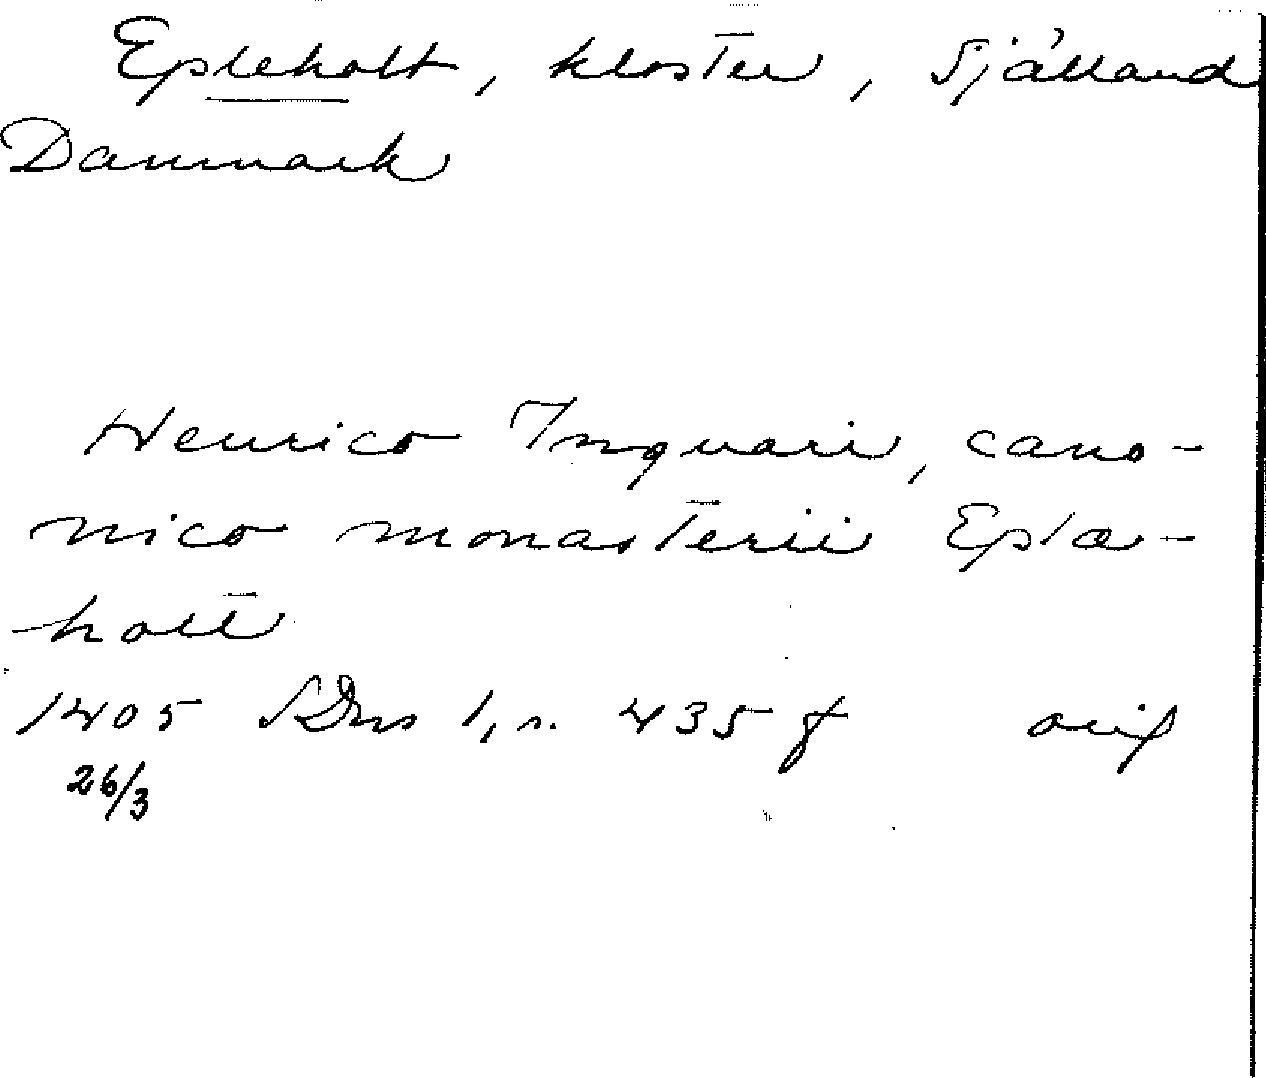 Epleholt, kloster, Själland
Danmark
Henrico Inguari, cano-
nico monasterii Epla-
holt
1405 SDns 1, s. 435 f orig
26/3